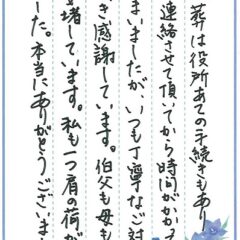 葬は役所あての手続きもあり
連絡させて頂いてから時間がかか
まいましたが、いつも丁寧なご対
き感謝しています。伯父も母も
堵しています。私も一つ肩の荷が
した。本当にありがとうございまし